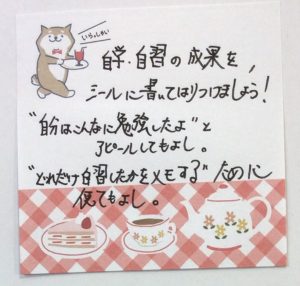 いらっしゃい
自学・自習の成果を,
シールに書いてはりつけましょう!
"自分はこんなに勉強したよ"と
アピールしてもよし。
"どれだけ自習したかをメモする"ために
使てもよし。